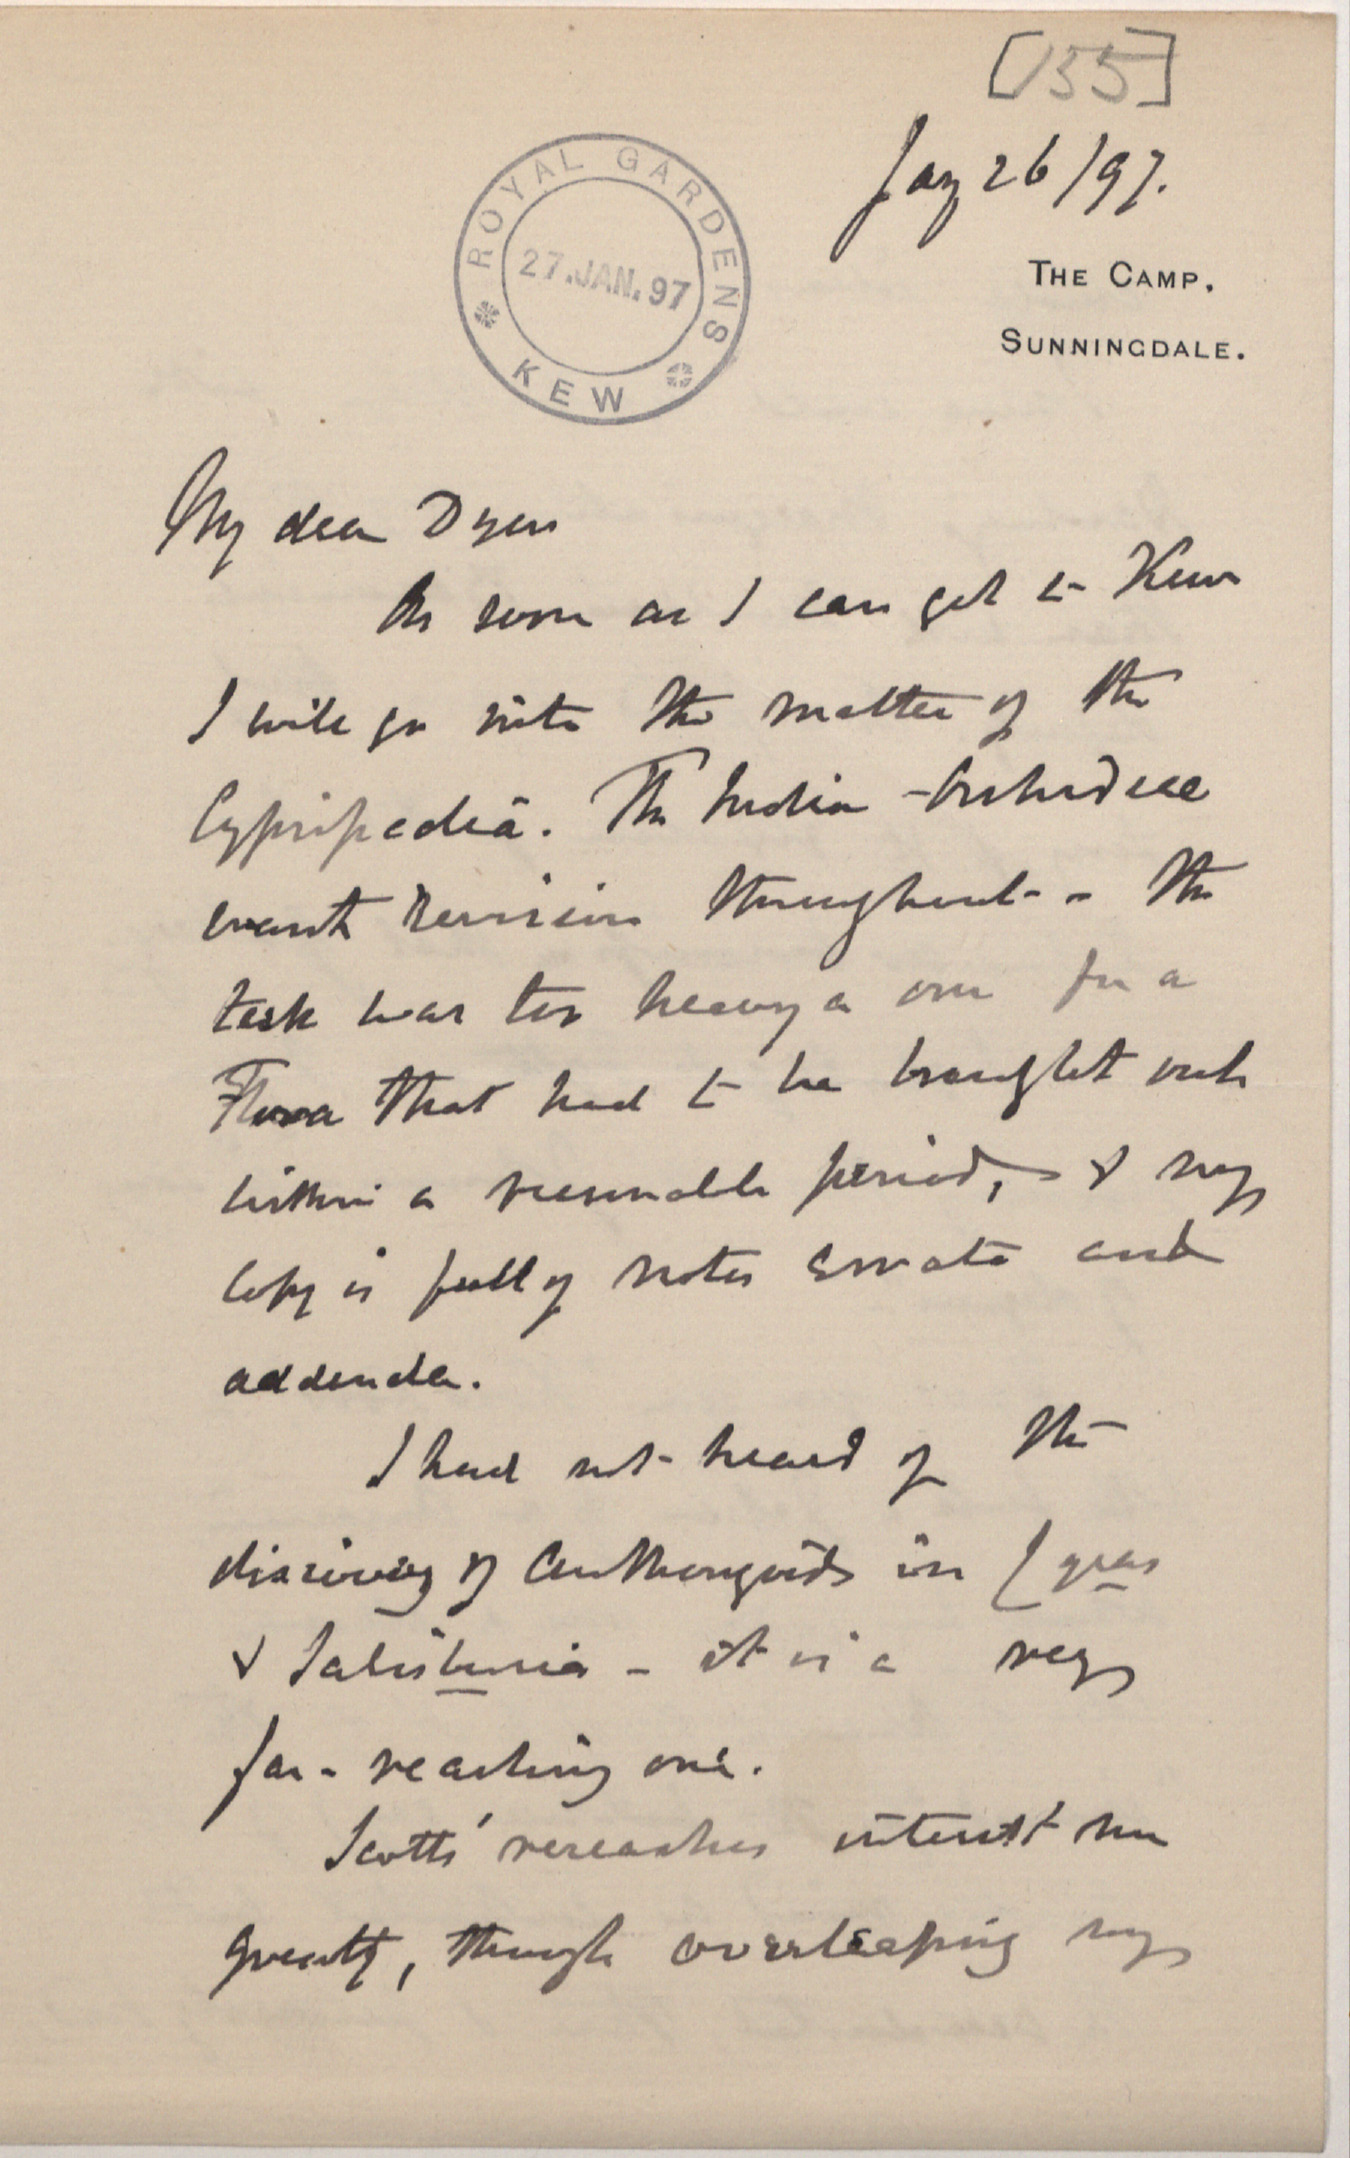 [155]
Jany 26/97.
ROYAL GARDENS KEW
27.JAN.97
THE CAMP,
SUNNINGDALE.
My dear Dyer
As soon as I can get to Kew
I will go into the matter of the
Cypripedia. The Indian Orchideae
want revision throughout - the
task was too heavy a one for a
Flora that had to be brought out
within a reasonable period, & my
copy is full of notes errata and
addenda.
I had not heard of the
discovery of antherozoids in Cycas
& Salisburia - it is a very
far-reaching one.
Scotts' researches interest me
greatly, though overleaping my